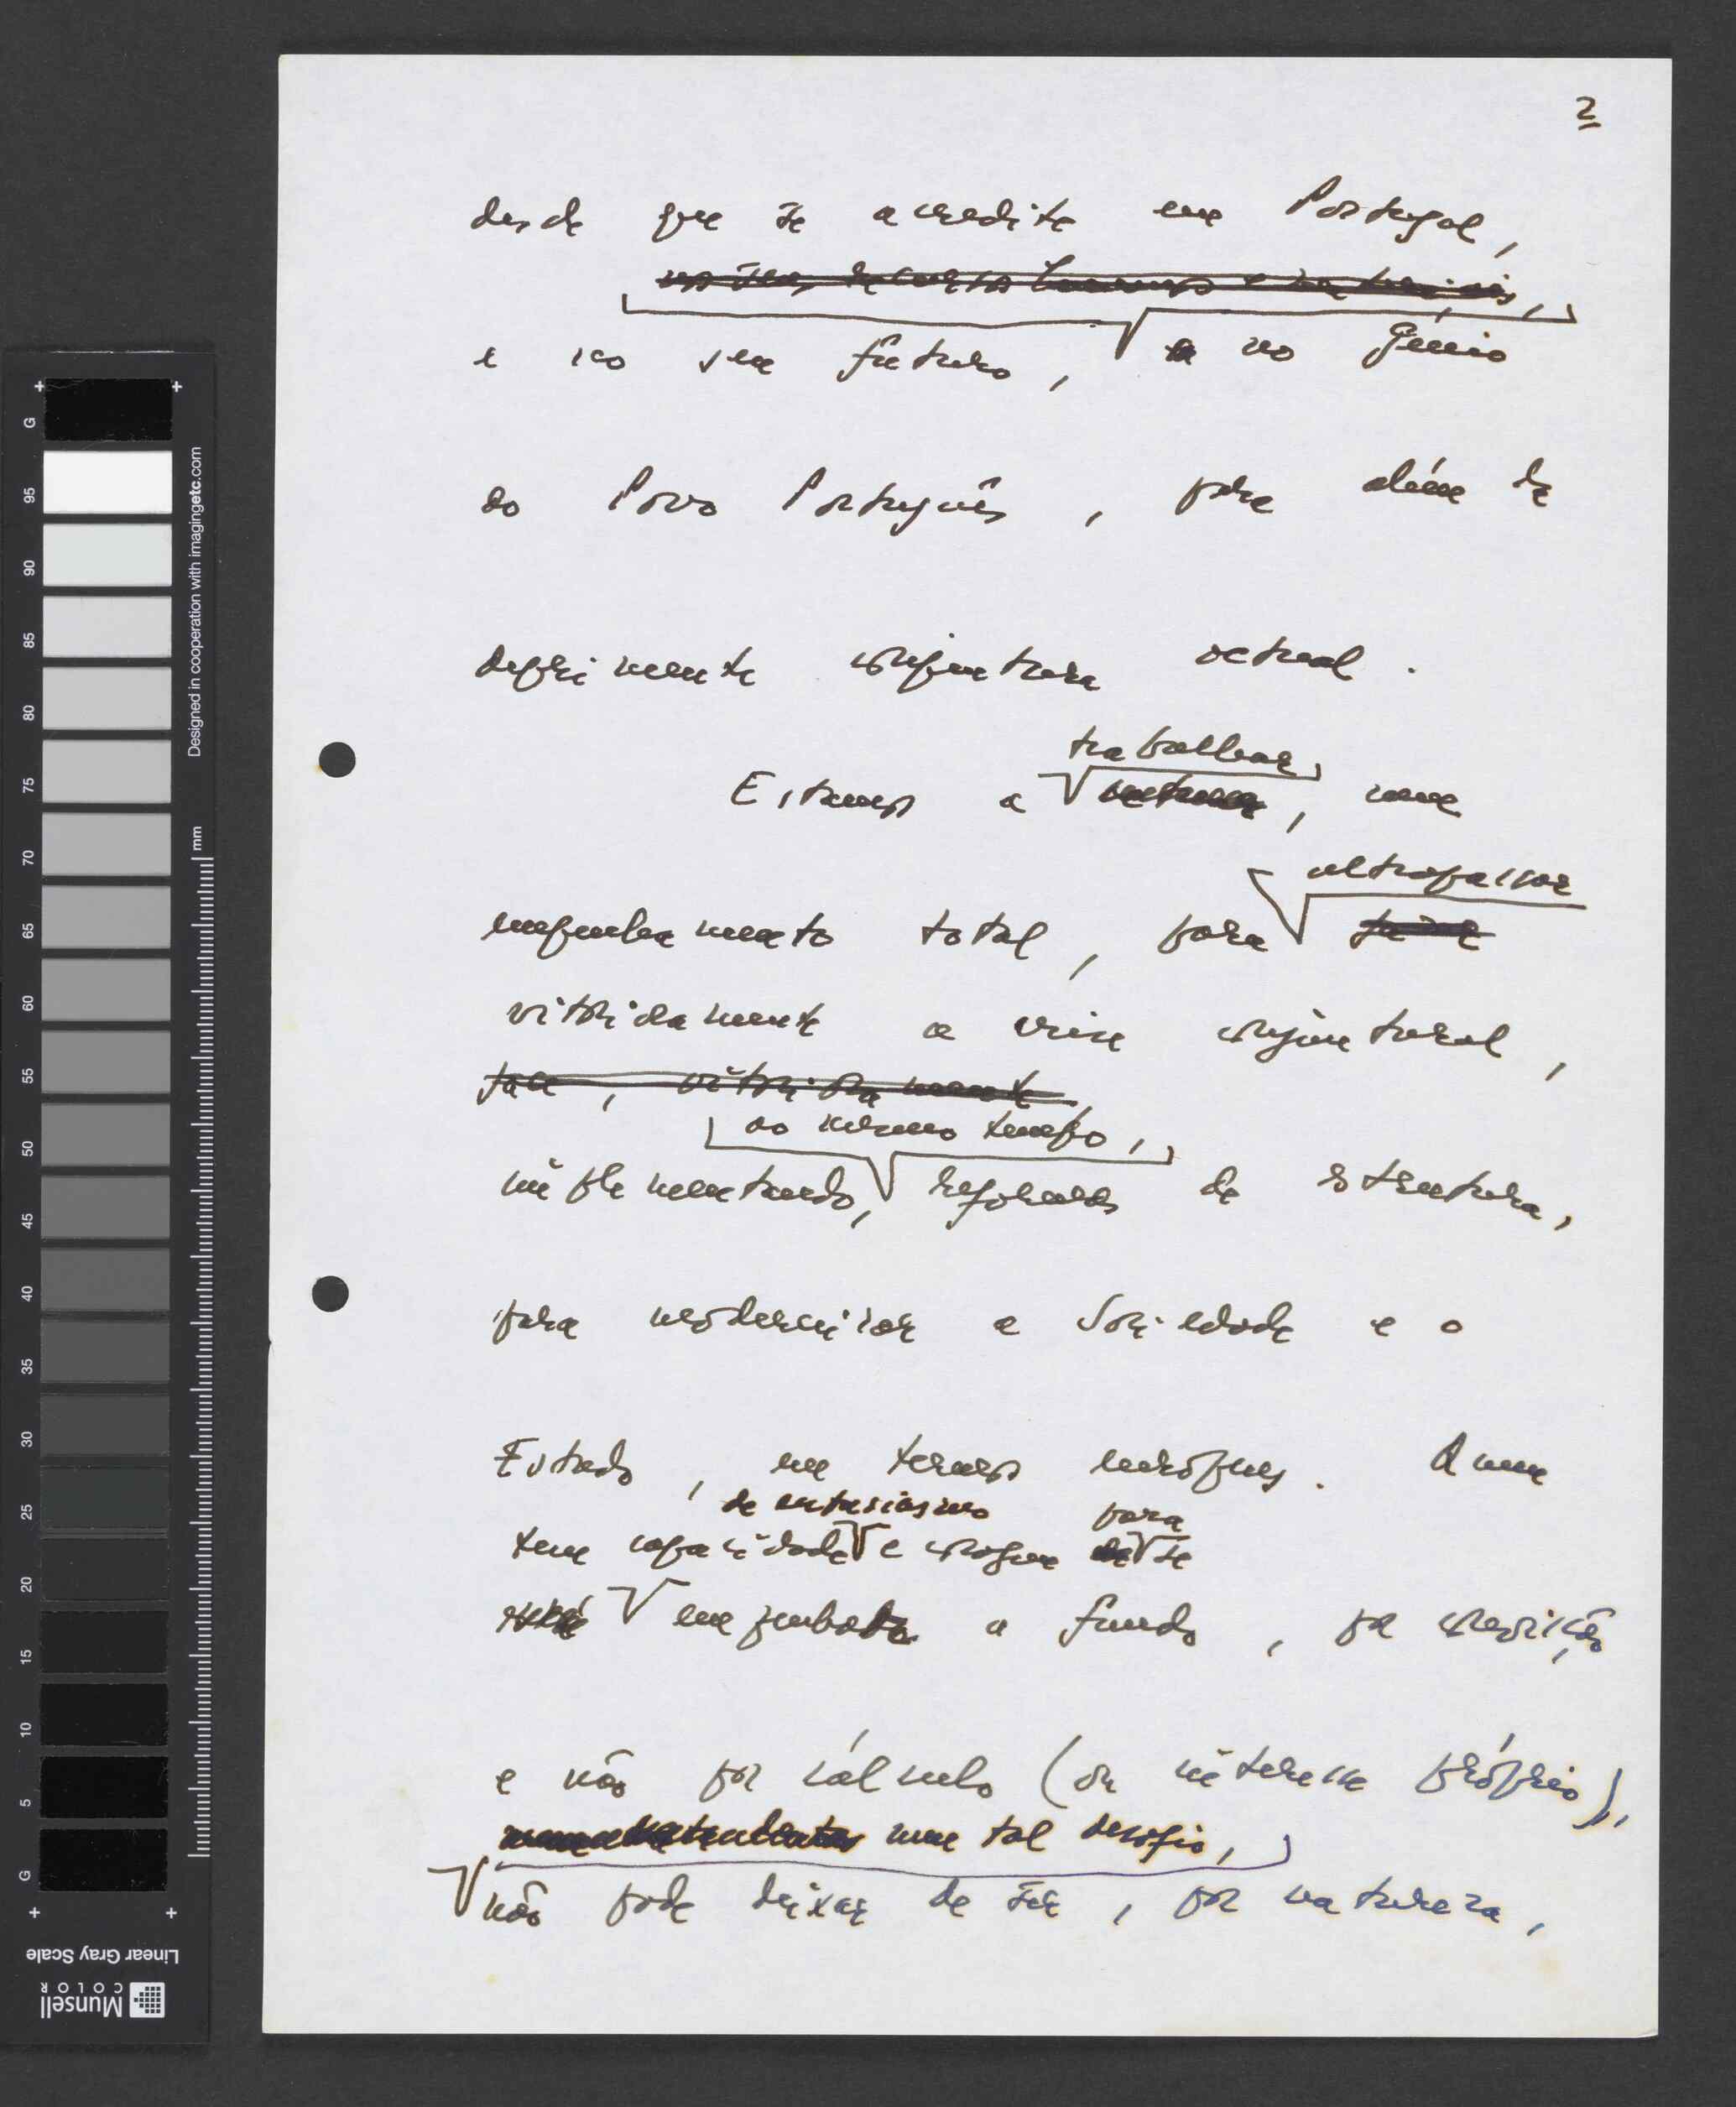 2
desde que se acredite em Portugal,
nos seus recursos humanos e materiais,
e no seu futuro, e no Génio
do Povo Português, para além da
deprimente conjuntura actual.
trabalhar,
Estamos a, com
ultrapassar
empenhamento total, para
vitoriosamente a crise conjuntural,
fase, vitoriosamente
ao mesmo tempo,
implementando, reformas de estrutura,
para modernizar a Sociedade e o
Estado, em termos europeus. Quem
de entusiasmo para
tem capacidade e coragem se
empenhar a fundo, por convicção
e não por cálculo (ou interesse próprio),
num tal desafio,
não pode deixar de ser, por natureza,
G 95 90 85 80 75 70 65 60 55 50 45 40 35 30 25 20 15 10 5 G
Designed in cooperation with imagingetc.com
mm
Linear Gray Scale
Munsell
COLOR